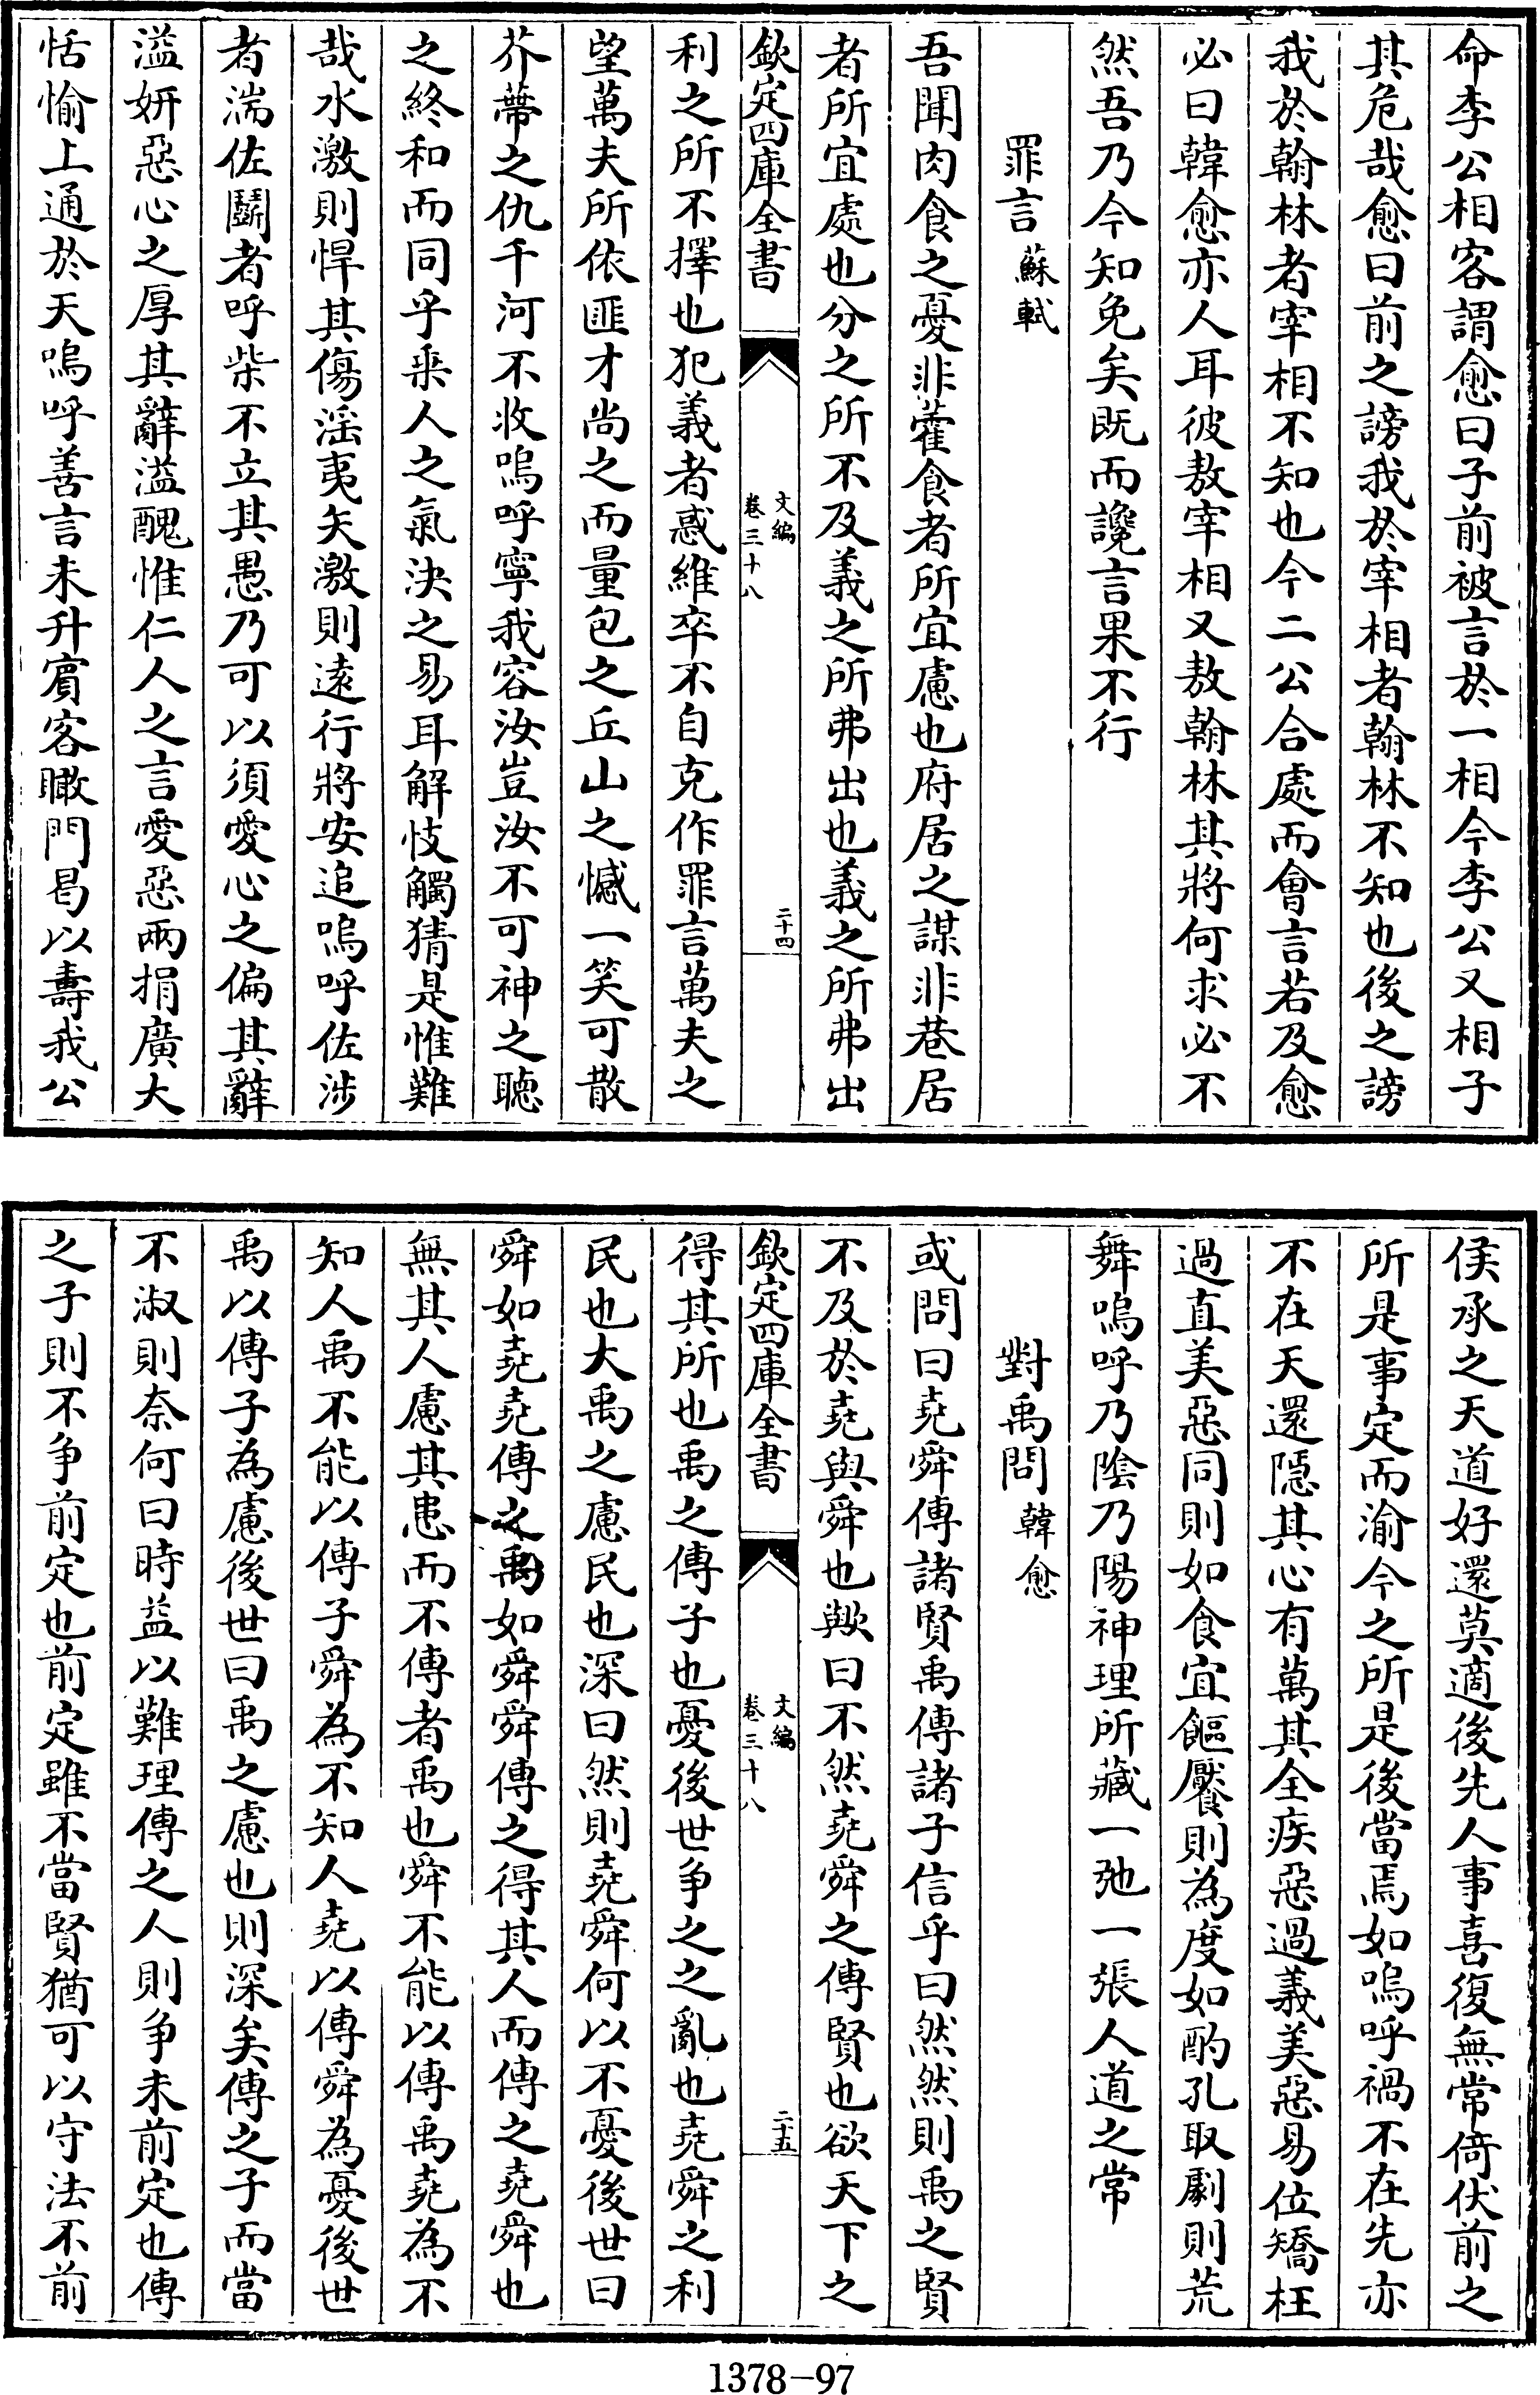 命李公相客謂愈曰子前被言於一相今李公又相子
其危哉愈曰前之謗我於宰相者翰林不知也後之謗
我於翰林者宰相不知也今二公合處而會言若及愈
必曰韓愈亦人耳彼敖宰相又敖翰林其將何求必不
然吾乃今知免矣既而讒言果不行
罪言 蘇軾
吾聞肉食之憂非藿食者所宜慮也府居之謀非巷居
者所宜處也分之所不及義之所弗出也義之所弗出
欽定四庫全書
文編
卷三十八
二十四
利之所不擇也犯義者惑維卒不自克作罪言萬夫之
望萬夫所依匪才尚之而量包之丘山之憾一笑可散
芥蔕之仇千河不收嗚呼寧我容汝豈汝不可神之聽
之終和而同乎乗人之氣決之易耳解忮觸猜是惟難
哉水激則悍其傷淫夷矢激則遠行將安追嗚呼佐涉
者湍佐鬭者呼柴不立其愚乃可以須愛心之偏其辭
溢妍惡心之厚其辭溢醜惟仁人之言愛惡兩捐廣大
恬愉上通於天嗚呼善言未升賓客瞰門曷以壽我公
侯承之天道好還莫適後先人事喜復無常倚伏前之
所是事定而渝今之所是後當焉如嗚呼禍不在先亦
不在天還隱其心有萬其全疾惡過義美惡易位矯枉
過直美惡同則如食宜饇饜則為度如酌孔取劇則荒
舞嗚呼乃陰乃陽神理所藏一弛一張人道之常
對禹問 韓愈
或問曰堯舜傳諸賢禹傳諸子信乎曰然然則禹之賢
不及於堯與舜也歟曰不然堯舜之傳賢也欲天下之
欽定四庫全書
文編
卷三十八
二十五
得其所也禹之傳子也憂後世争之之亂也堯舜之利
民也大禹之慮民也深曰然則堯舜何以不憂後世曰
舜如堯堯傳之禹如舜舜傳之得其人而傳之堯舜也
無其人慮其患而不傳者禹也舜不能以傳禹堯為不
知人禹不能以傳子舜為不知人堯以傳舜為憂後世
禹以傳子為慮後世曰禹之慮也則深矣傳之子而當
不淑則奈何曰時益以難理傳之人則争未前定也傳
之子則不争前定也前定雖不當賢猶可以守法不前
1378-97